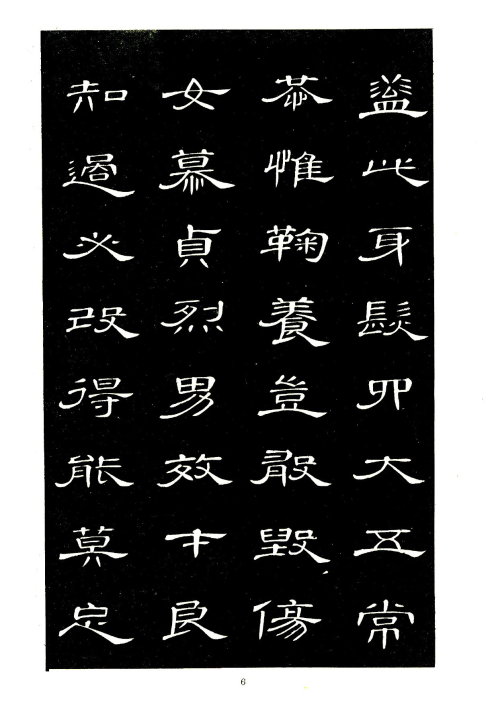 蓋此身髮四大五常
恭惟鞠養豈敢毀傷
女慕貞烈男效才良
知過必改得能莫忘
6